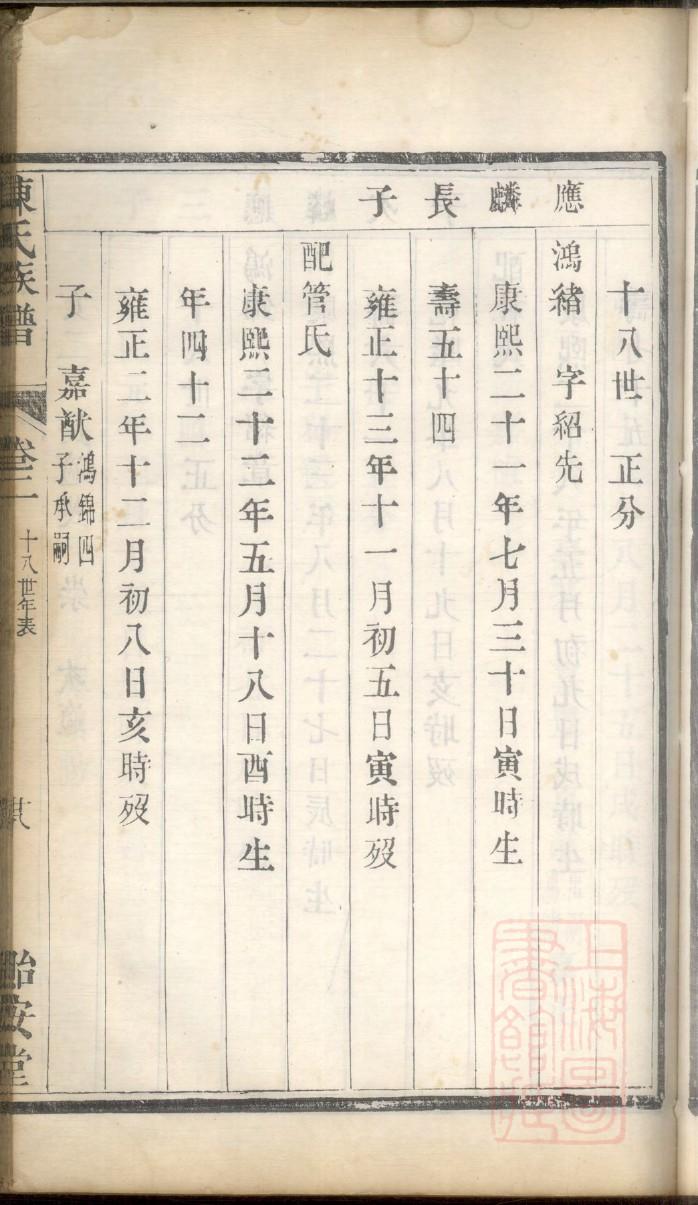 十八世 正分
應麟長子
鴻緒 字紹先
康熙二十一年七月三十日寅時生
壽五十四
雍正十三年十一月初五日寅時歿
配管氏
康熙二十二年五月十八日酉時生
年四十二
雍正二年十二月初八日亥時歿
子 嘉猷 鴻錦四
子承嗣
陳氏族譜
卷二
十八世年表
怡安堂
上海圖
書館藏